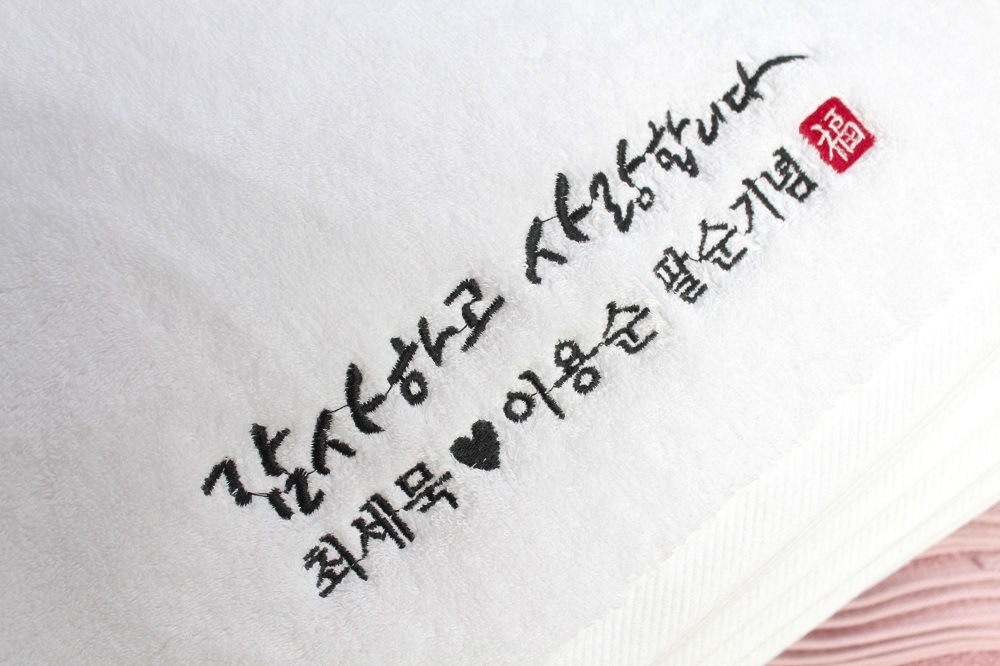 감사하고 사랑합니다
최세묵♥이용순 팔순기념 福